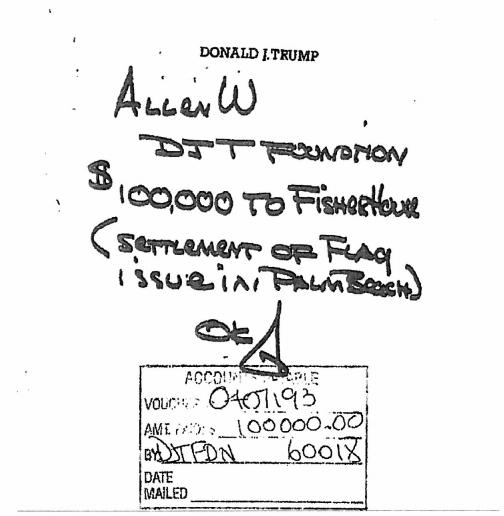 DONALD J. TRUMP
Allen W
DJT Foundation
$100,000 to FisherHouse
(settlement of Flag
issue in Palm Beach)
OK
ACCOUNTS PAYABLE
VOUCHER 0401193
AMT 100000.00
BY DJTFDN 60018
DATE
MAILED